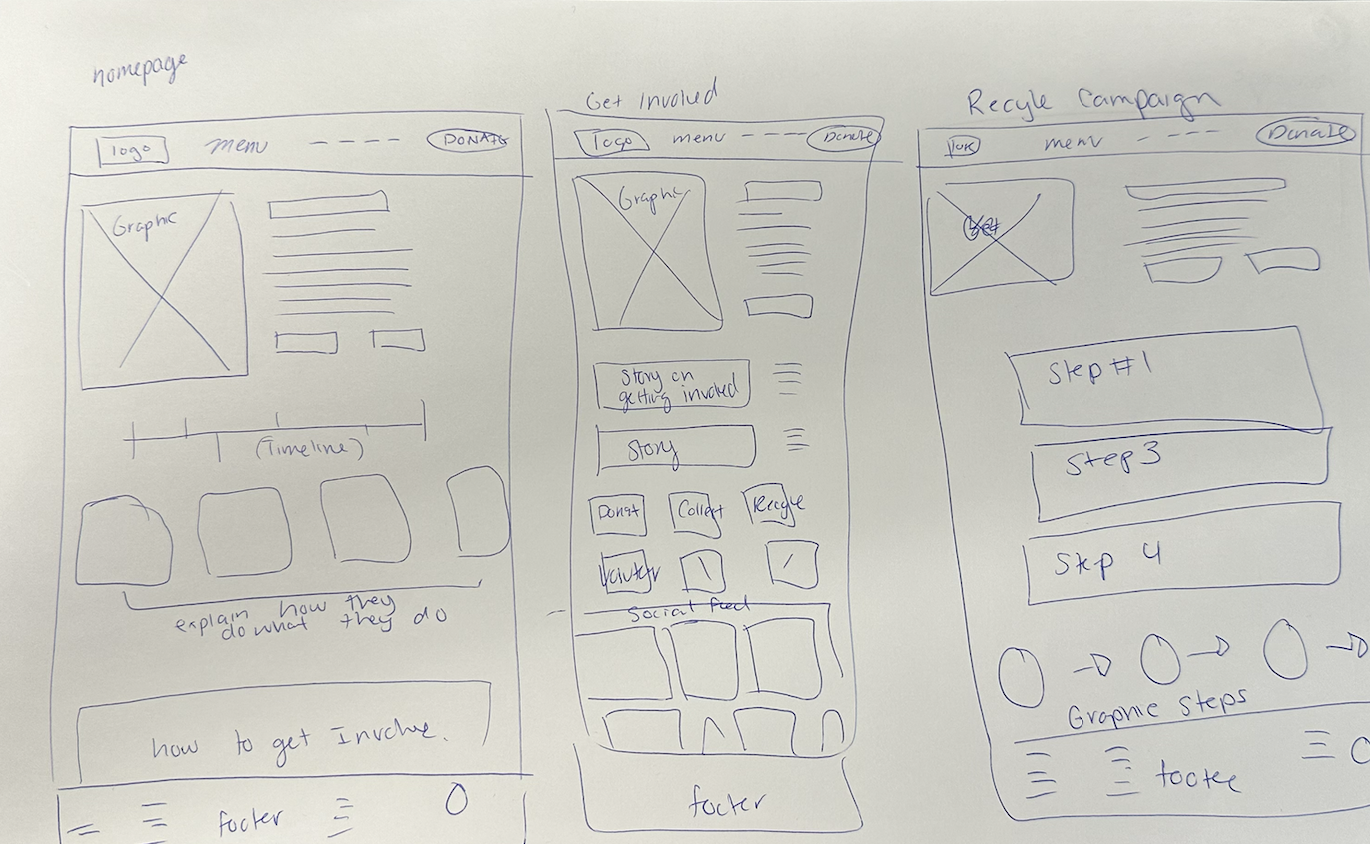 homepage
logo menu DONATE
Graphic
(Timeline)
explain how they
do what they do
how to get Involve.
footer
Get Involved
Logo menu Donate
Graphic
Story on
getting involved
Story
Donat Collect Recycle
Social feed
footer
Recyle Campaign
menu Donate
Step #1
Step 3
Step 4
Graphic Steps